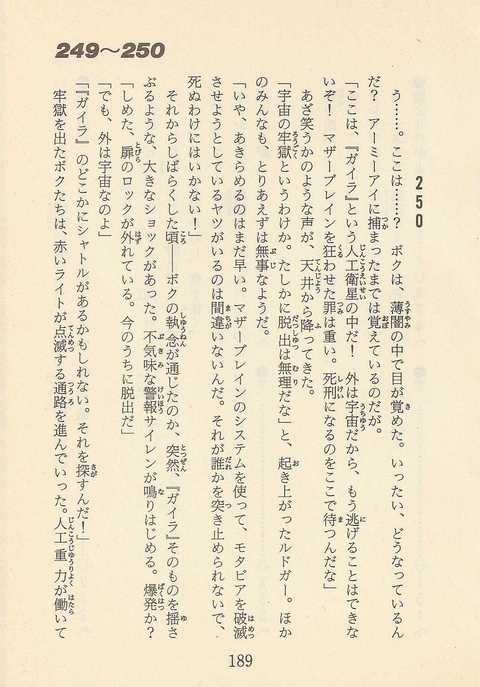 249〜250
250
う……。ここは……？　ボクは、薄闇の中で目が覚めた。いったい、どうなっているん
だ？　アーミーアイに捕まったまでは覚えているのだが。
「ここは、『ガイラ』という人工衛星の中だ！　外は宇宙だから、もう逃げることはできな
いぞ！　マザーブレインを狂わせた罪は重い。死刑になるのをここで待つんだな」
あざ笑うかのような声が、天井から降ってきた。
「宇宙の牢獄というわけか。たしかに脱出は無理だな」と、起き上がったルドガー。ほか
のみんなも、とりあえずは無事なようだ。
「いや、あきらめるのはまだ早い。マザーブレインのシステムを使って、モタビアを破滅
させようとしているヤツがいるのは間違いないんだ。それが誰かを突き止められないで、
死ぬわけにはいかない！」
それからしばらくした頃――ボクの執念が通じたのか、突然、『ガイラ』そのものを揺さ
ぶるような、大きなショックがあった。不気味な警報サイレンが鳴りはじめる。爆発か？
「しめた、扉のロックが外れている。今のうちに脱出だ」
「でも、外は宇宙なのよ」
「『ガイラ』のどこかにシャトルがあるかもしれない。それを探すんだ！」
牢獄を出たボクたちは、赤いライトが点滅する通路を進んでいった。人工重力が働いて
189